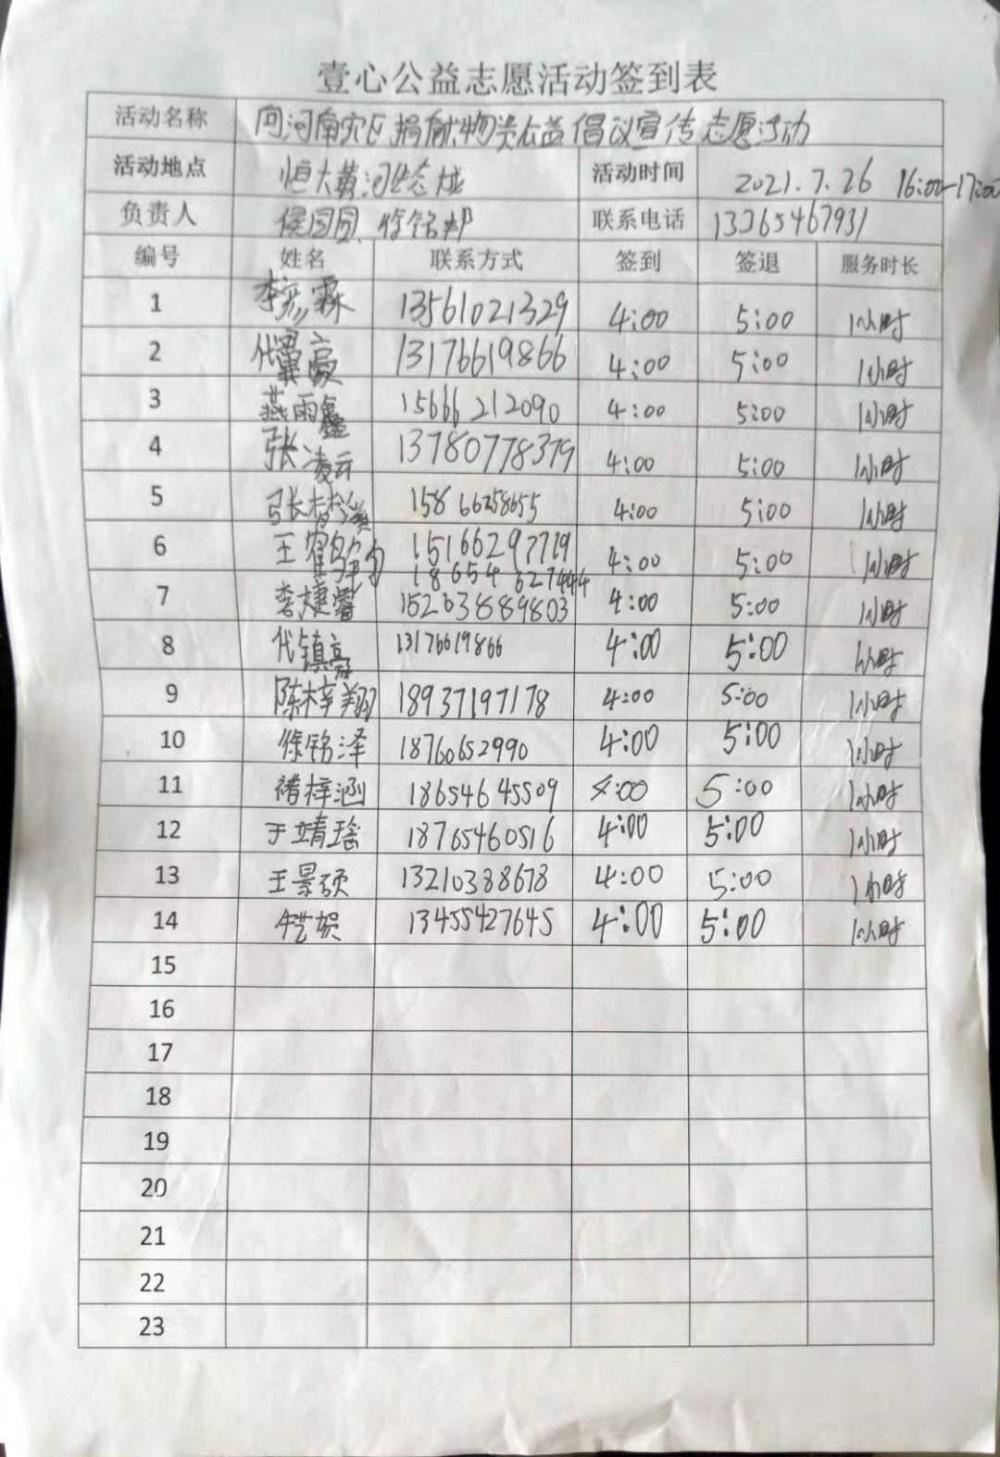 壹心公益志愿活动签到表
活动名称 向河南灾区捐献物资公益倡议宣传志愿活动
活动地点 恒大黄河生态城 活动时间 2021.7.26 16:00-17:00
负责人 侯园园 徐铭邦 联系电话 13365467931
编号 姓名 联系方式 签到 签退 服务时长
1 李彦霖 13561021329 4:00 5:00 1小时
2 代翼豪 13176619866 4:00 5:00 1小时
3 燕雨鑫 15666212090 4:00 5:00 1小时
4 张凌云 13780778379 4:00 5:00 1小时
5 15866258655 4:00 5:00 1小时
6 王 15166297719 4:00 5:00 1小时
18654627444
7 李婕馨 15263889803 4:00 5:00 1小时
8 代镇豪 13176619866 4:00 5:00 1小时
9 陈梓翔 18937197178 4:00 5:00 1小时
10 徐铭泽 18760652990 4:00 5:00 1小时
11 褚梓涵 18654645509 4:00 5:00 1小时
12 于靖瑶 18765460516 4:00 5:00 1小时
13 王景硕 13210388678 4:00 5:00 1小时
14 13455427645 4:00 5:00 1小时
15
16
17
18
19
20
21
22
23